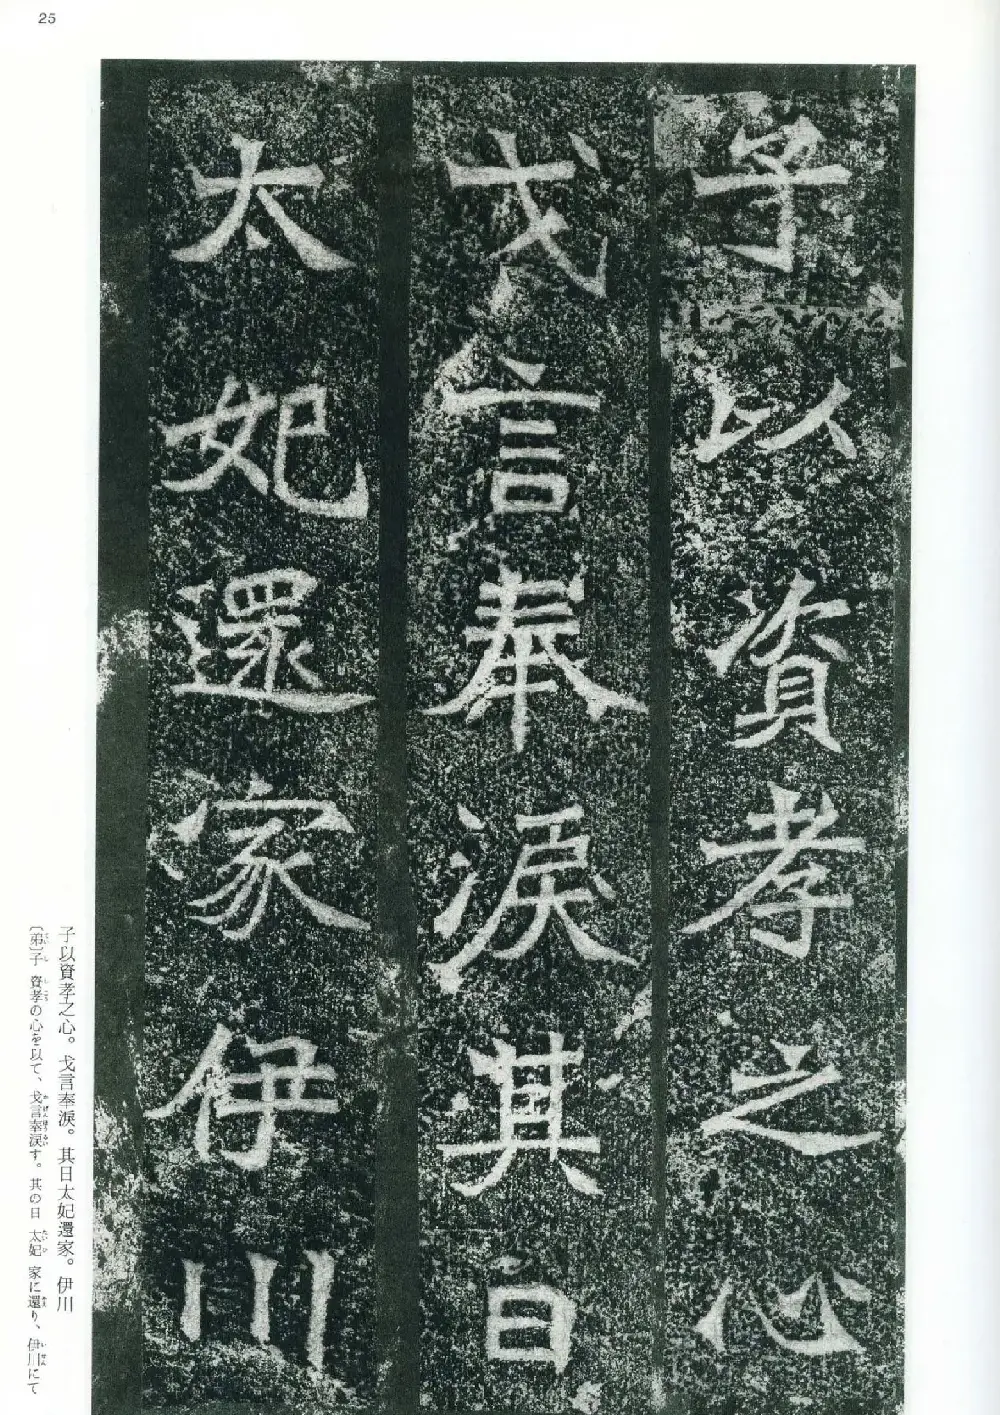 25
子以資孝之心
戈言奉淚其日
太妃還家伊川
子以資孝之心。戈言奉淚。其日太妃還家。伊川
〔弟〕子 資孝の心を以て、戈言奉淚す。其の日 太妃 家に還り、伊川にて